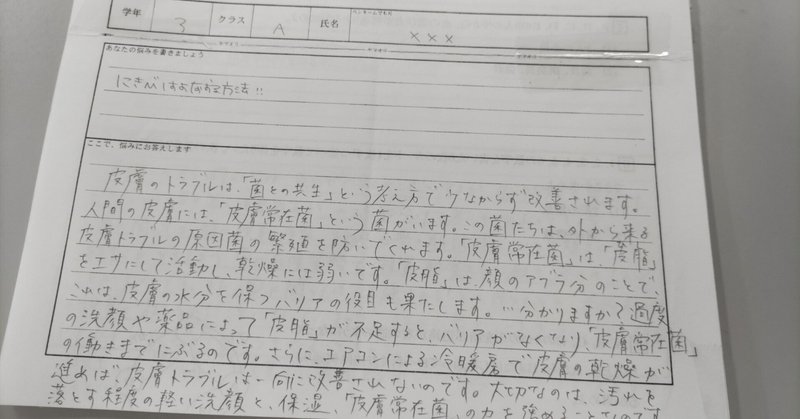 学年 3 クラス A 氏名 ペンネームでもOK ×××
ヤマオリ ヤマオリ ヤマオリ
あなたの悩みを書きましょう
にきびはよなおる方法!!
ここで、悩みにお答えします
皮膚のトラブルは、「菌との共生」という考え方で少なからず改善されます。
人間の皮膚には、「皮膚常在菌」という菌がいます。この菌たちは、外から来る
皮膚トラブルの原因菌の繁殖を防いでくれます。「皮膚常在菌」は、「皮脂」
をエサにして活動し、乾燥には弱いです。「皮脂」は、顔のアブラ分のことで、
これは、皮膚の水分を保つバリアの役目も果たします。…分かりますか?過度
の洗顔や薬品によって「皮脂」が不足すると、バリアがなくなり、「皮膚常在菌」
の働きまでにぶるのです。さらに、エアコンによる冷暖房で皮膚の乾燥が
進めば、皮膚トラブルは一向に改善されないのです。大切なのは、汚れを
落とす程度の軽い洗顔と、保湿、「皮膚常在菌」の力を強めることなのです